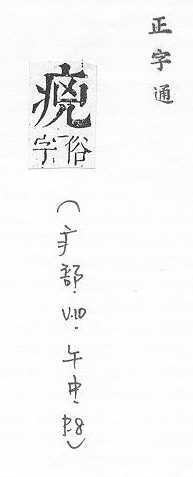 正字通
俗字
(疒部.V.10.午中.P.8)